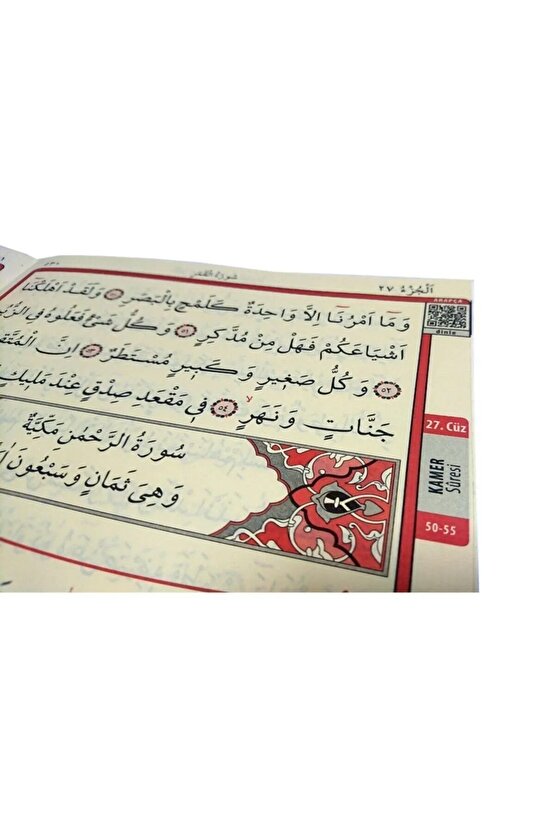 سورة القمر
اَلْجُزْءُ ٢٧
وَمَٓا اَمْرُنَٓا اِلَّا وَاحِدَةٌ كَلَمْحٍ بِالْبَصَرِ ٥٠ وَلَقَدْ اَهْلَكْنَٓا
اَشْيَاعَكُمْ فَهَلْ مِنْ مُدَّكِرٍ ٥١ وَكُلُّ شَيْءٍ فَعَلُوهُ فِي
٥٢ وَكُلُّ صَغٖيرٍ وَكَبٖيرٍ مُسْتَطَرٌ ٥٣ اِنَّ
جَنَّاتٍ وَنَهَرٍ ٥٤ فٖي مَقْعَدِ صِدْقٍ عِنْدَ مَلٖيكٍ
سُورَةُ الرَّحْمٰنِ مَكِّيَّةٌ
وَهِيَ ثَمَانٍ وَسَبْعُونَ
ARAPÇA
dinle
27. Cüz
KAMER
Sûresi
50-55